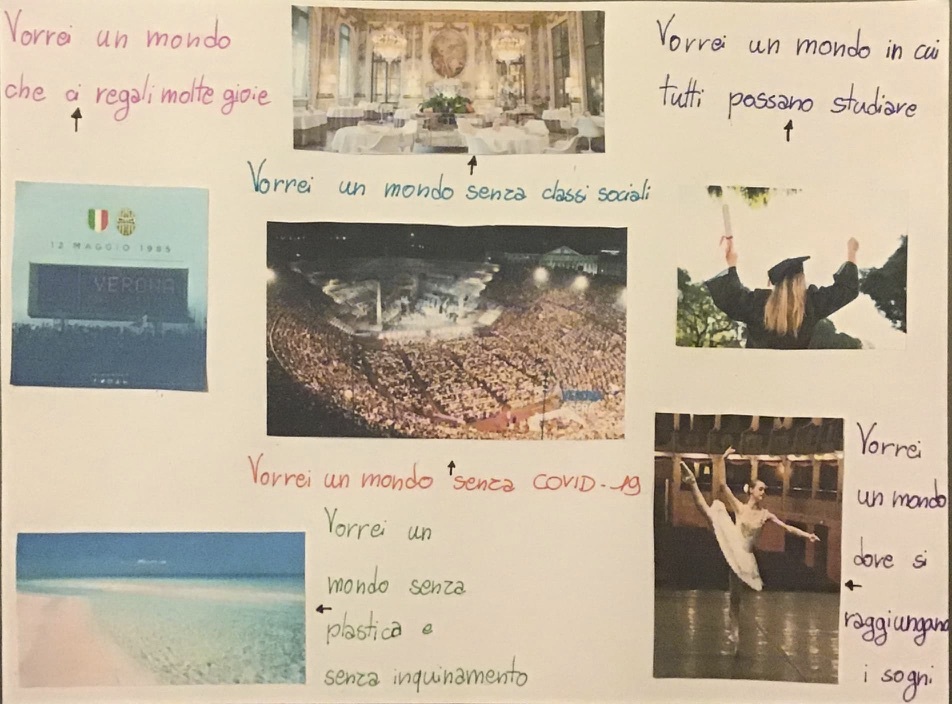 Vorrei un mondo
che ci regali molte gioie
Vorrei un mondo in cui
tutti possano studiare
Vorrei un mondo senza classi sociali
12 MAGGIO 1985
VERONA
VERONA
Vorrei un mondo senza COVID-19
Vorrei un
mondo senza
plastica e
senza inquinamento
Vorrei
un mondo
dove si
raggiungano
i sogni